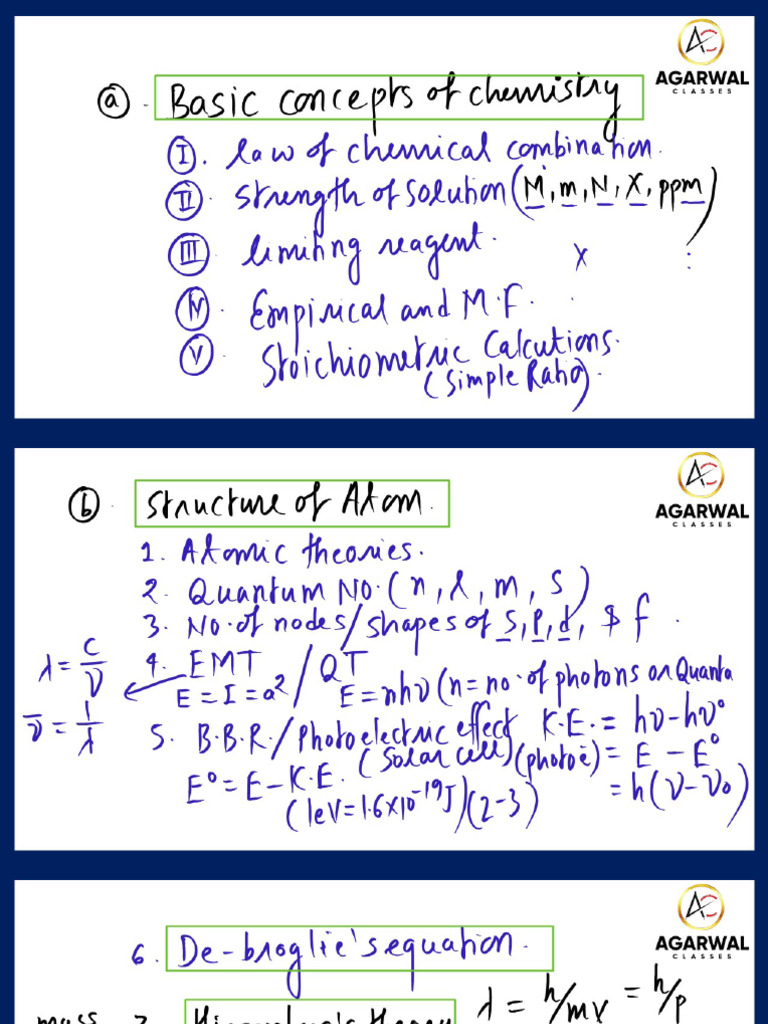 AGARWAL
CLASSES
ⓐ. Basic concepts of chemistry
Ⓘ. law of chemical combination.
Ⓘⓘ. Strength of solution (M, m, N, X, ppm)
III limiting reagent.
X :
IV. Empirical and M.F.
V. Stoichiometric Calcutions.
(Simple Ratio).
AGARWAL
CLASSES
ⓑ. Structure of Atom.
1. Atomic theories.
2. Quantum No. (n, l, m, s)
3. No. of nodes/shapes of s, p, d, $ f.
λ = c/ν
4. EMT / QT
E = I = a² / E = nhν (n = no. of photons or Quanta
ν̅ = 1/λ
5. B.B.R. / Photoelectric effect K.E. = hν - hν°
(Solar cell) (photoē) = E - E°
E° = E - K.E. = h(ν - ν₀)
(1eV = 1.6×10⁻¹⁹J)(2-3)
AGARWAL
CLASSES
6. De-broglie's equation.
λ = h/mv = h/p
mass